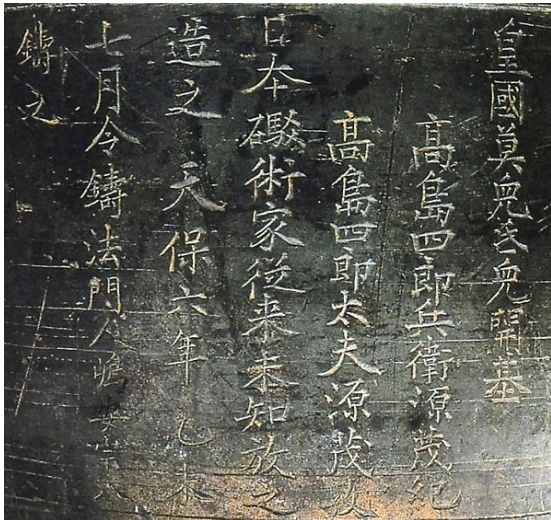 皇國莫兒氐兒開基
髙島四郎兵衛源茂紀
髙島四郎太夫源茂敦
日本礮術家従来未知放之
造之 天保六年 乙未
七月令鑄法門人嶋安宗八
鑄之